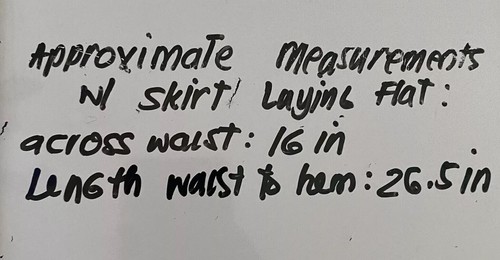 Approximate Measurements
W/ Skirt Laying Flat:
across waist: 16 in
Length waist to hem: 26.5 in